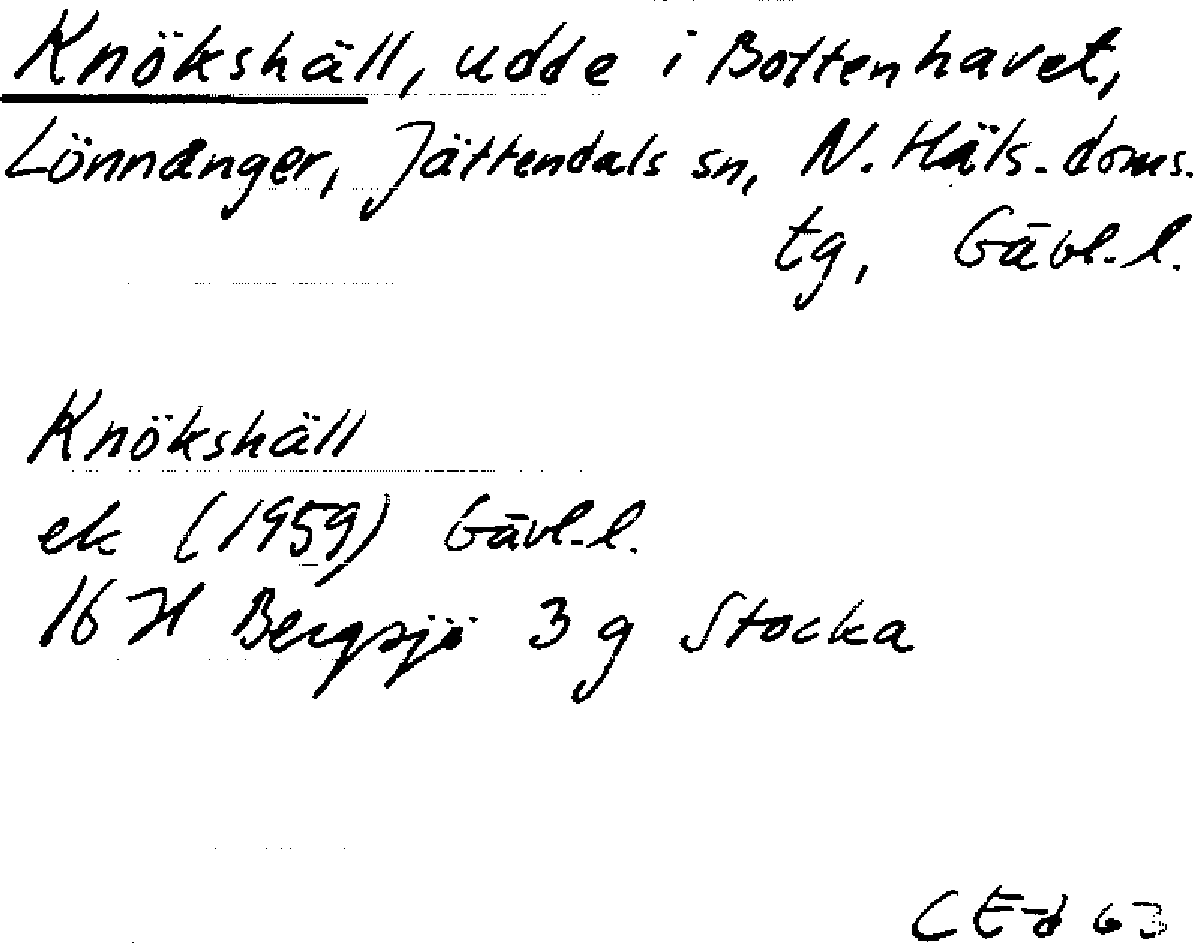 Knökshäll, udde i Bottenhavet,
Lönnånger, Jättendals sn, N. Häls. doms.
tg, Gävl. l.
Knökshäll
ek (1959) Gävl. l.
16 H Bergsjö 3 g Stocka
CE-d 63